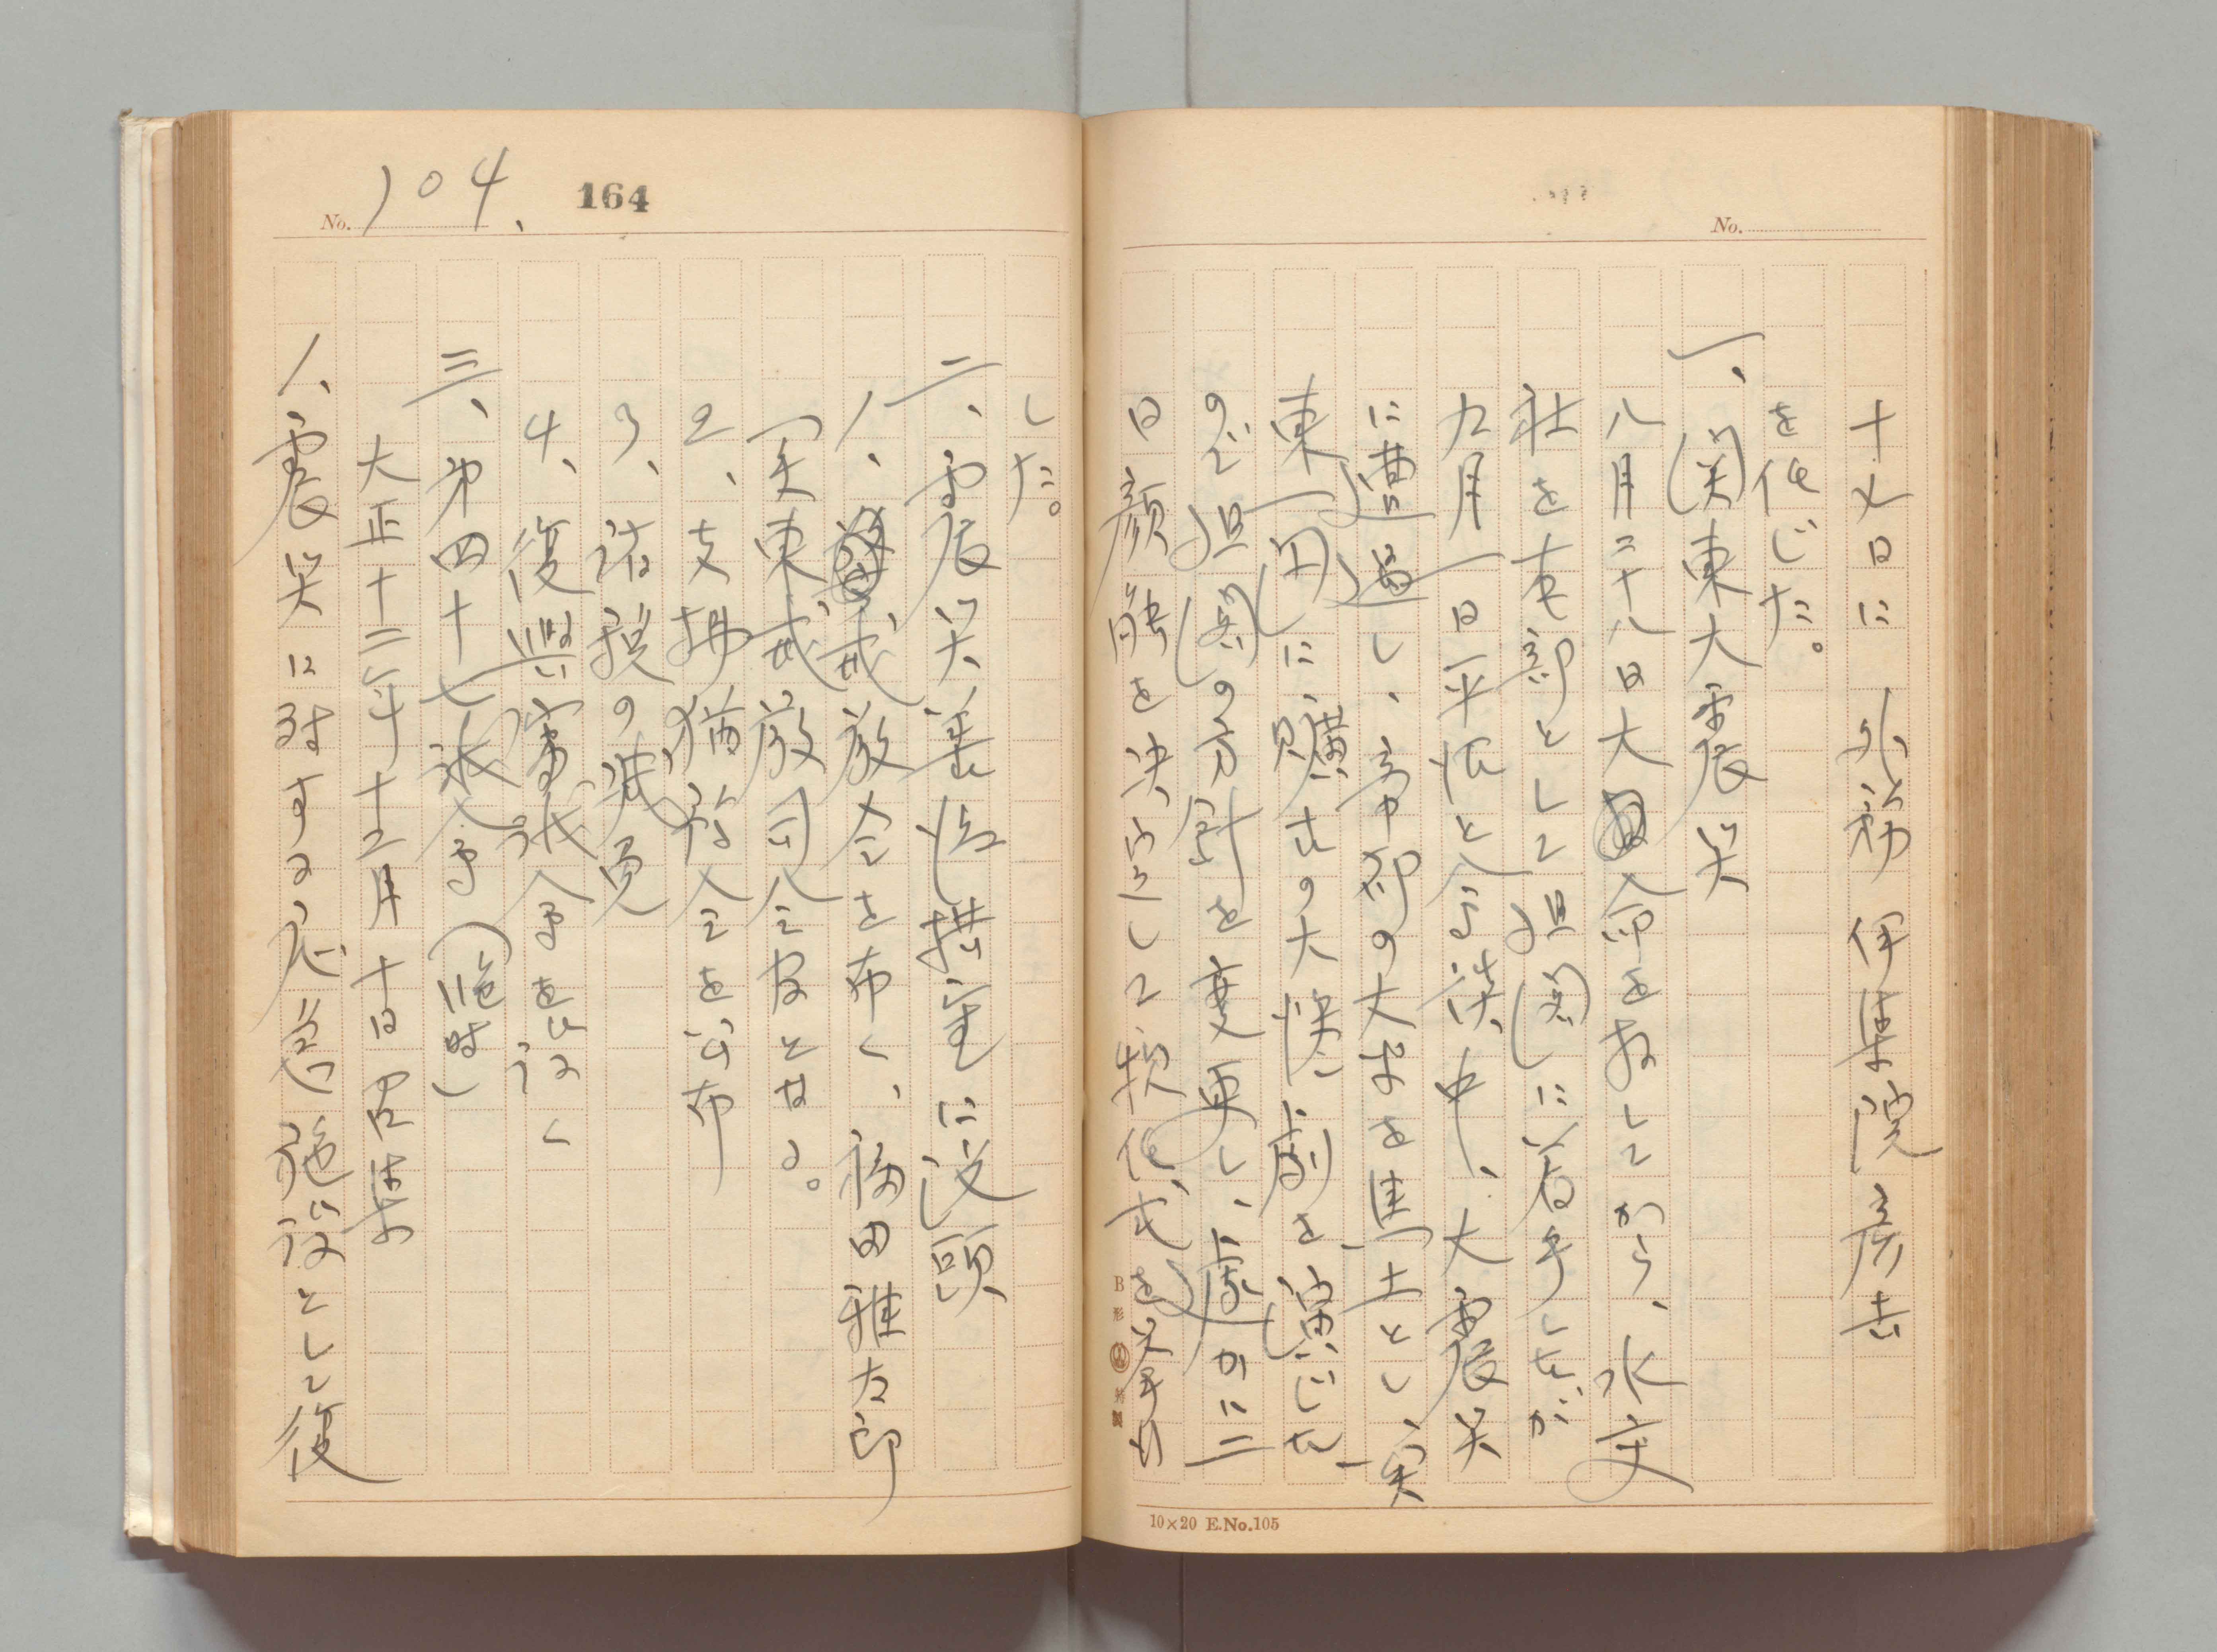 No.
十九日に外務 伊集院彦吉
を任じた。
一、関東大震災
八月二十八日大命を拝してから、水交
社を本部として組閣に着手したが
九月一日平沼と会談中、大震災
に遭遇し、帝都の大半を焦土とし、関
東一円に購古の大惨劇を演じた
ので組閣の方針を変更し、僅かに二
日 顔触を決定して親任式を挙げ
B形
10×20 E.No.105
No. 104. 164
した。
二、震災善後措置に没頭
1、戒厳令を布く、福田雅太郎
関東戒厳司令官となる。
2、支払猶予令を公布
3、諸税の減免
4、復興審議会を設く
三、第四十七議会(臨時)
大正十二年十二月十日召集
1、震災に対する応急施設として復